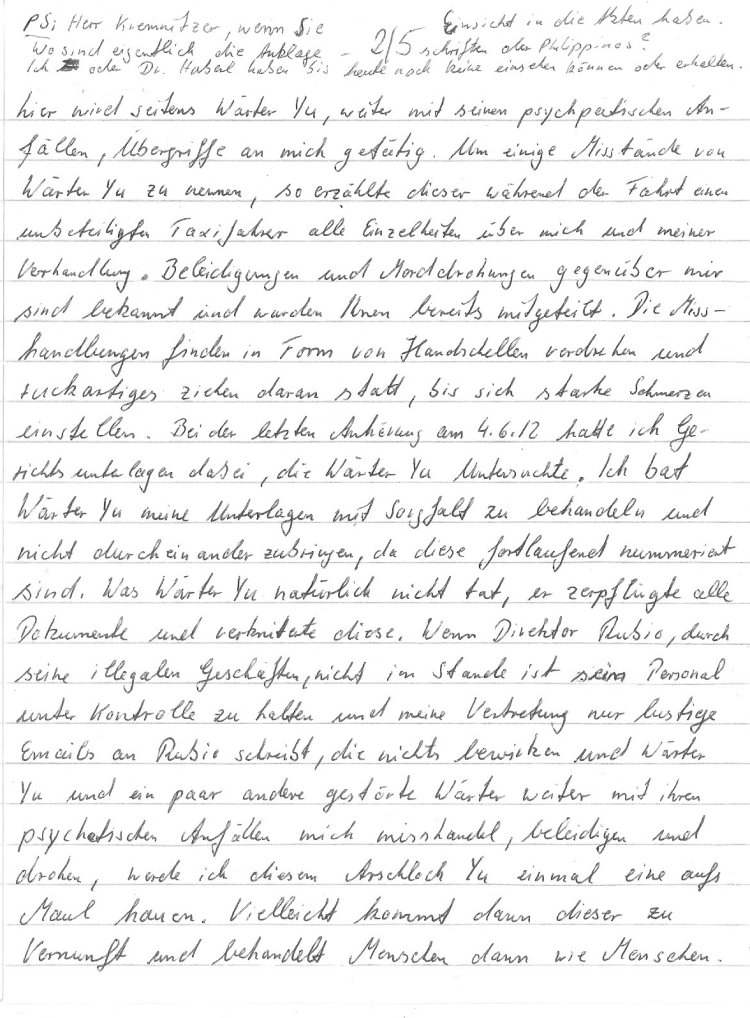 PS: Herr Kremnitzer, wenn Sie Einsicht in die Akten haben.
Wo sind eigentlich die Anklage - 2/5 schriften der Philippinos?
Ich oder Dr. Haberl haben bis heute noch keine einsehen können oder erhalten.
hier wird seitens Wärter Yu, weiter mit seinen psychpatischen An-
fällen, Übergriffe an mich getätig. Um einige Misstände von
Wärter Yu zu nennen, so erzählte dieser während der Fahrt einen
unbeteiligten Taxifahrer alle Einzelheiten über mich und meiner
Verhandlung. Beleidigungen und Morddrohungen gegenüber mir
sind bekannt und wurden Ihnen bereits mitgeteilt. Die Miss-
handlungen finden in Form von Handschellen verdrehen und
ruckartiges ziehen daran statt, bis sich starke Schmerzen
einstellen. Bei der letzten Anhörung am 4.6.12 hatte ich Ge-
richtsunterlagen dabei, die Wärter Yu Untersuchte. Ich bat
Wärter Yu meine Unterlagen mit Sorgfalt zu behandeln und
nicht durcheinander zubringen, da diese fortlaufend nummeriert
sind. Was Wärter Yu natürlich nicht tat, er zerpflügte alle
Dokumente und verknitterte diese. Wenn Direktor Rubio, durch
seine illegalen Geschäften, nicht im Stande ist sein Personal
unter Kontrolle zu halten und meine Vertretung nur lustige
Emails an Rubio schreibt, die nichts bewirken und Wärter
Yu und ein paar andere gestörte Wärter weiter mit ihren
psychatischen Anfällen mich misshandel, beleidigen und
drohen, werde ich diesem Arschloch Yu einmal eine aufs
Maul hauen. Vielleicht kommt dann dieser zu
Vernunft und behandelt Menschen dann wie Menschen.